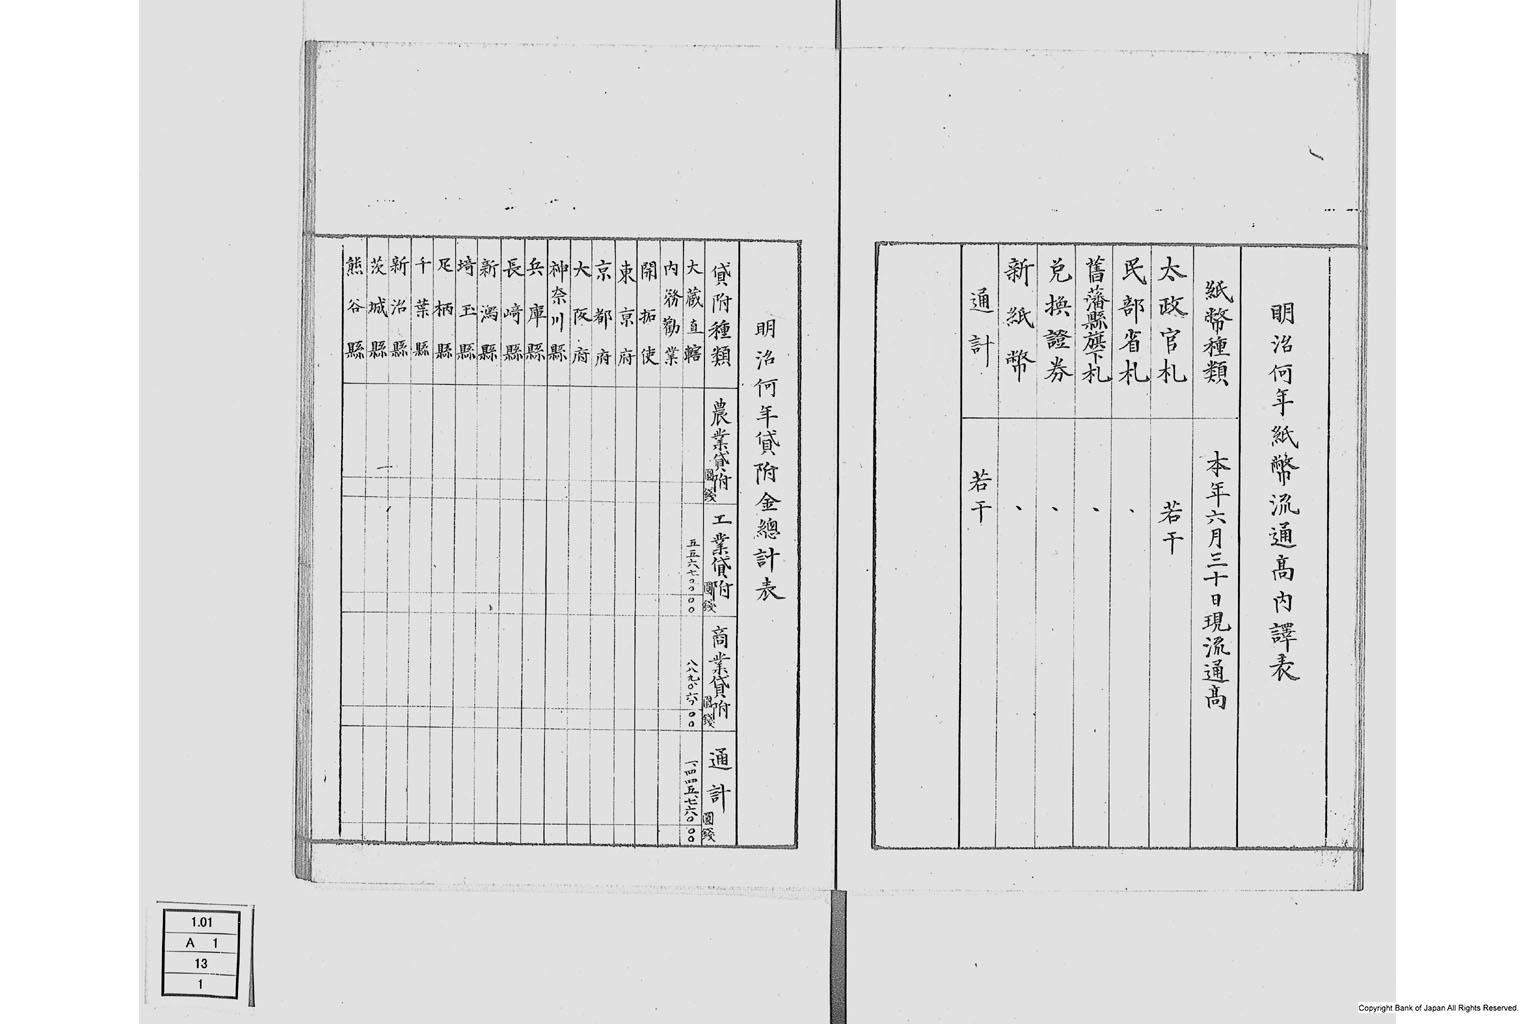 明治何年紙幣流通高內譯表
紙幣種類 本年六月三十日現流通高
太政官札 若干
民部省札 、
舊藩縣旗下札 、
兌換證券 、
新紙幣 、
通計 若干
明治何年貸附金總計表
貸附種類 農業貸附 圓 錢 工業貸附 圓 錢 商業貸附 圓 錢 通計 圓 錢
大藏直轄 五五六七〇〇〇〇 八八九〇六〇〇 一四四五七六〇〇〇
內務勸業
開拓使
東京府
京都府
大阪府
神奈川縣
兵庫縣
長崎縣
新潟縣
埼玉縣
足柄縣
千葉縣
新治縣
茨城縣
熊谷縣
1.01
A 1
13
1
Copyright Bank of Japan All Rights Reserved.